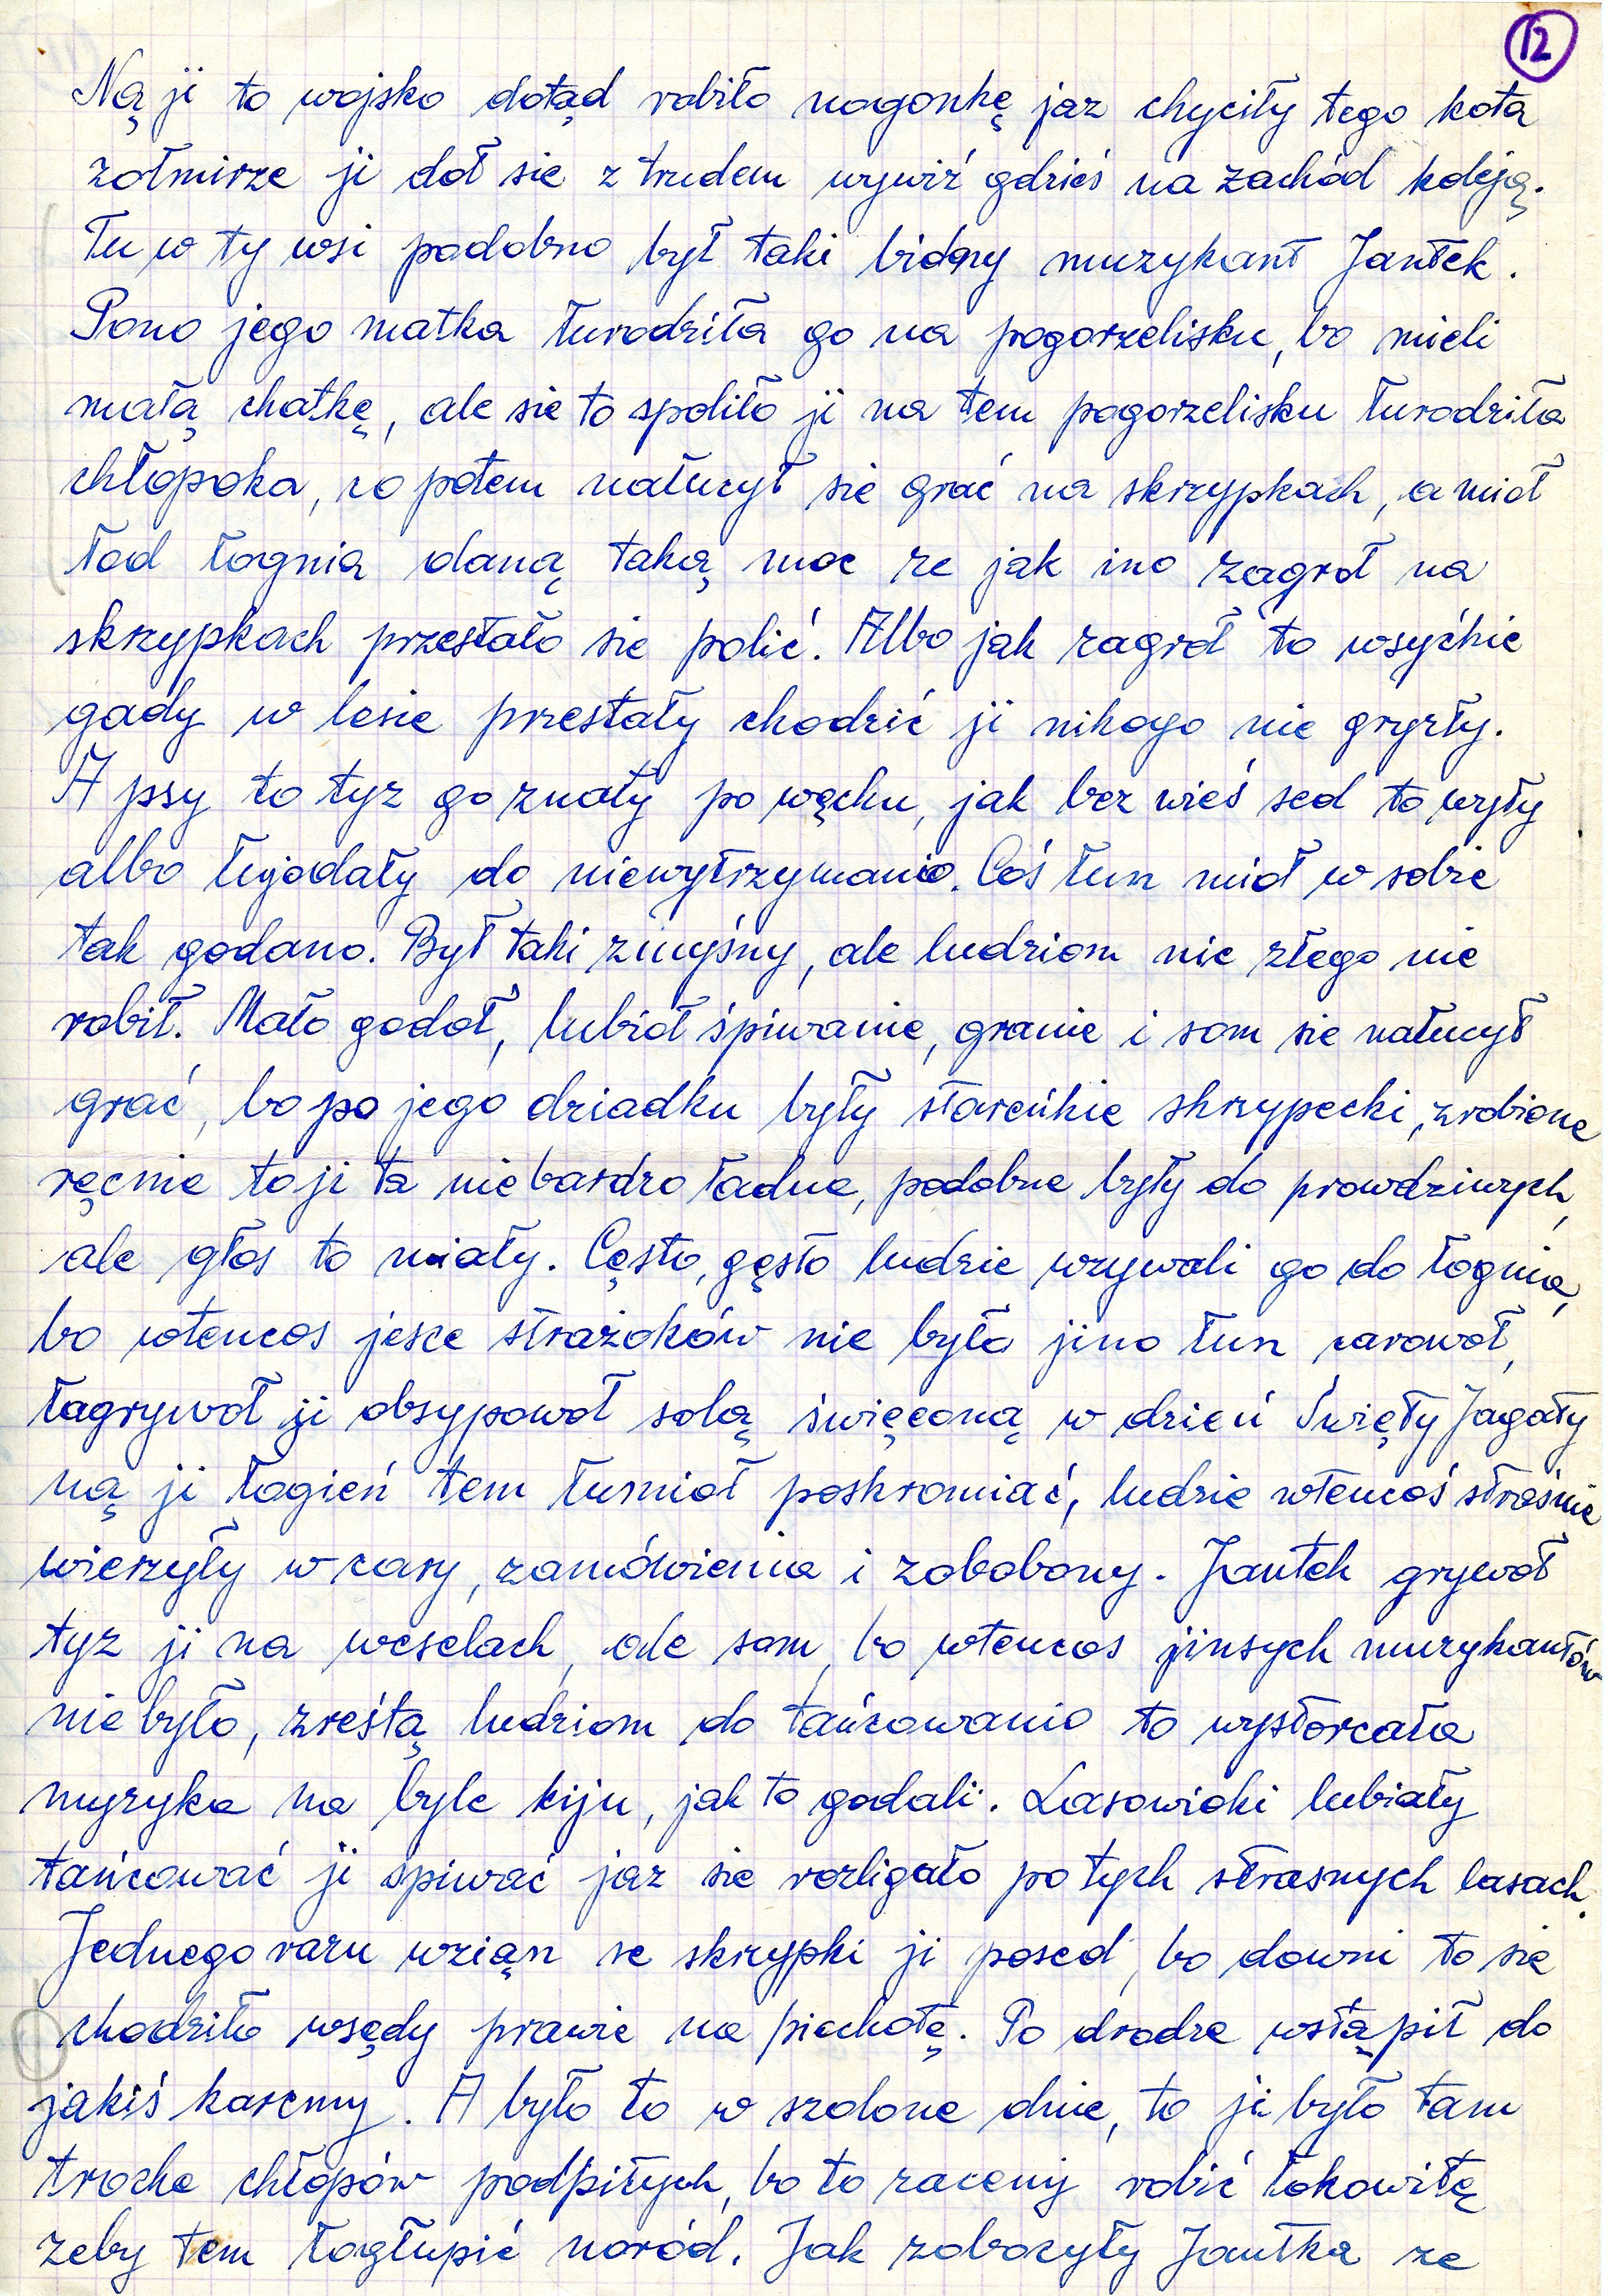 12
Ną ji to wojsko dotąd robiło nagonkę jaz chyciły tego kota
zołmirze ji doł sie z trudem wywiź gdzieś na zachód koleją.
Tu w ty wsi podobno był taki bidny muzykant Jantek.
Pono jego matka łurodziła go na pogorzelisku, bo mieli
małą chatkę, ale sie to spoliło ji na tem pogorzelisku łurodziła
chłopoka, co potem nałucył sie grać na skrzypkach, a mioł
łod łognia daną taką moc ze jak ino zagroł na
skrzypkach przestało sie polić. Albo jak zagroł to wsyćkie
gady w lesie przestały chodzić ji nikogo nie gryzły.
A psy to tyz go znały po węchu, jak bez wieś sed to wyły
albo łujodały do niewytrzymanio. Coś łun mioł w sobie
tak godano. Był taki zmyśny, ale ludziom nic złego nie
robił. Mało godoł, lubioł śpiwanie, granie i som sie nałucył
grać, bo po jego dziadku były stareńkie skrzypecki, zrobione
ręcnie to ji ta nie bardzo ładne, podobne były do prowdziwych,
ale głos to miały. Cęsto, gęsto ludzie wzywali go do łognia,
bo wtencos jesce strażoków nie było jino łun carowoł,
łagrywoł ji obsypowoł solą święconą w dzień Święty Jagaty
ną ji łogień tem łumioł poskromiać, ludzie wtencoś straśnie
wierzyły w cary, zamówienia i zobobony. Jantek grywoł
tyz ji na weselach, ale som, bo wtencos jinsych muzykantów
nie było, zreśtą ludziom do tańcowanio to wystorcała
muzyka na byle kiju, jak to godali. Lasowioki lubiały
tańcować ji spiwać jaz sie rozligało po tych strasnych lasach.
Jednego razu wziąn se skrzypki ji posed, bo downi to się
chodziło wsędy prawie na piechotę. Po drodze wstąpił do
jakiś karcmy. A było to w szolone dnie, to ji było tam
troche chłopów podpitych, bo to zaceny robić łokowitę
zeby tem łogłupić noród. Jak zobocyły Jantka ze